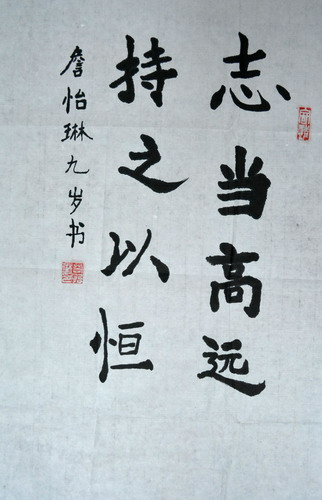 志当高远
持之以恒
詹怡琳九岁书